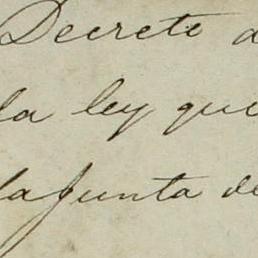 Decreto d
la ley que
la Junta de